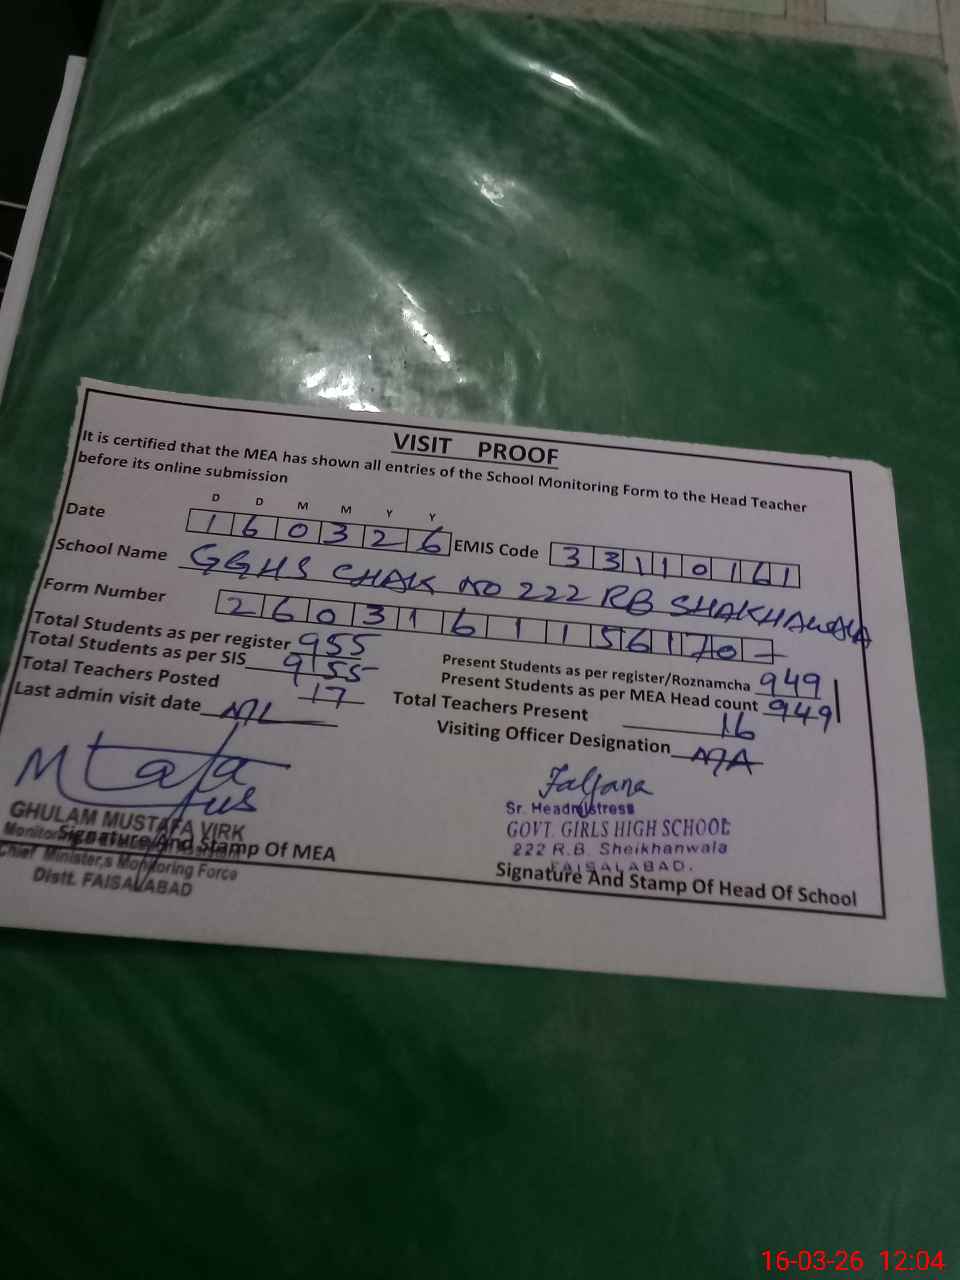 VISIT PROOF
It is certified that the MEA has shown all entries of the School Monitoring Form to the Head Teacher
before its online submission
D D M M Y Y
Date 160326 EMIS Code 33110161
School Name GGHS CHAK NO 222 RB
Form Number 26031611156170
Total Students as per register 955
Total Students as per SIS 955
Total Teachers Posted 17
Last admin visit date
Present Students as per register/Roznamcha 949
Present Students as per MEA Head count 949
Total Teachers Present 16
Visiting Officer Designation
GHULAM MUSTAFA VIRK
Signature And Stamp Of MEA
Chief Minister,s Monitoring Force
Distt. FAISALABAD
Sr. Headmistress
GOVT. GIRLS HIGH SCHOOL
222 R.B. Sheikhanwala
FAISALABAD.
Signature And Stamp Of Head Of School
16-03-26 12:04